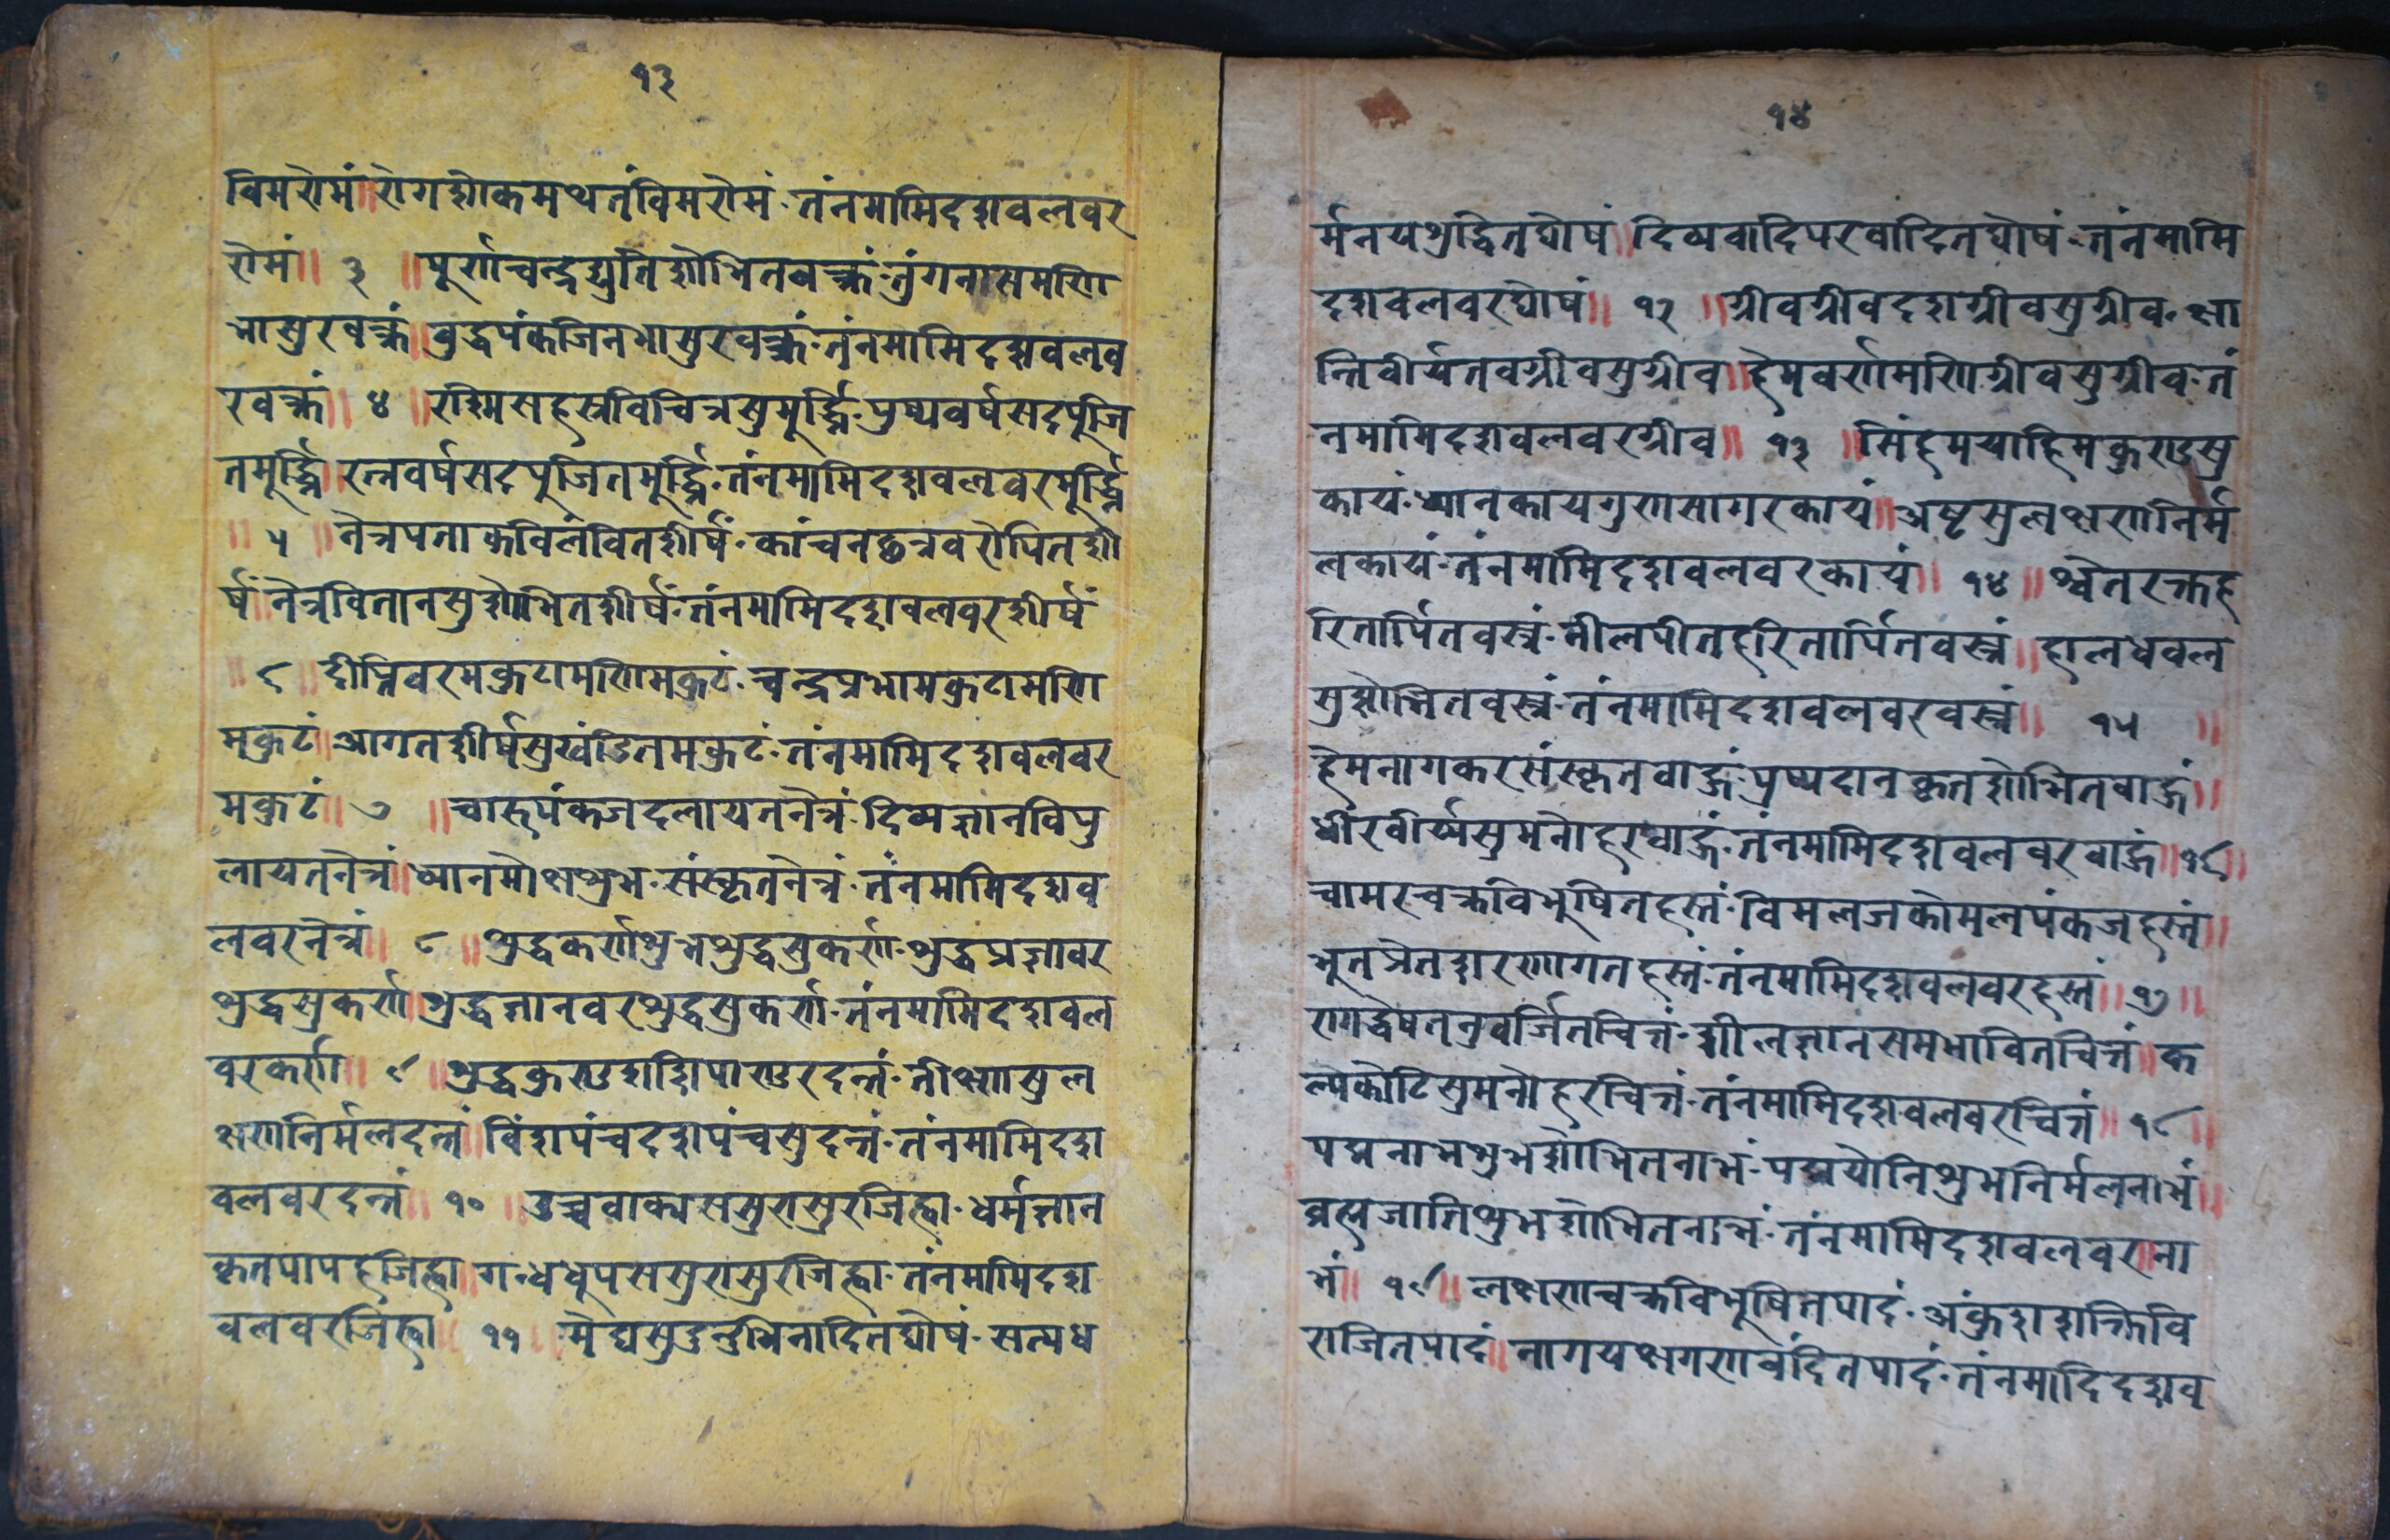 १३
विमरोमं॥रोगशोकमथतंविमरोमं·तंनमामिदशवलवर
रोमं॥ ३ ॥पूर्णचन्द्रद्युतिशोभितवक्त्रं·तुंगनासमणि
भासुरवक्त्रं॥वुद्धपंकजिनभासुरवक्त्रं·तंनमामिदशवलव
रवक्त्रं॥ ४ ॥रश्मिसहस्रविचित्रसुमुर्द्ध्नि·पुष्पवर्षसदपूजि
तमूर्द्ध्नि॥रत्नवर्षसदपुजितमुर्द्ध्नि·तंनमामिदशवलवरमूर्द्ध्नि
॥ ५ ॥नेत्रपताकविलंवितशीर्षं·कांचनछत्रवरोपितशी
र्षं॥नेत्रवितानसुशोभितशीर्षं·तंनमामिदशवलवरशीर्षं
॥ ६ ॥दीप्तिवरमकुटामणिमकुटं·चन्द्रप्रभामकुटामणि
मकुटं॥आगतशीर्षसुखंडितमकुटं·तंनमामिदशवलवर
मकुटं॥ ७ ॥चारुपंकजदलायतनेत्रं·दिव्यज्ञानविपु
लायतनेत्रं॥ध्यानमोक्षशुभ·संस्कृतनेत्रं·तंनमामिदशव
लवरनेत्रं॥ ८ ॥शुद्धकर्णशुभशुद्धसुकर्ण·शुद्धप्रज्ञावर
शुद्धसुकर्ण॥शुद्धज्ञानवरशुद्धसुकर्ण·तंनमामिदशवल
वरकर्ण॥ ९ ॥शुद्धकुण्डशशिपाण्डुरदन्तं·तीक्ष्णसुल
क्षणनिर्मलदन्तं॥विंशपंचदशपंचसुदन्तं·तंनमामिदश
वलवरदन्तं॥ १० ॥उच्चवाक्यससुरासुरजिह्वा·धर्मज्ञान
कृतपापहजिह्वा॥गन्धधूपससुरासुरजिह्वा·तंनमामिदश
वलवरजिह्वा॥ ११ ॥मेघसुदुन्दुभिनादितघोषं·सत्यध
१४
र्मनयशुद्धितघोषं॥दिव्यवादिपरवादितघोषं·तंनमामि
दशवलवरघोषं॥ १२ ॥ग्रीवग्रीवदशग्रीवसुग्रीव·क्षा
न्तिवीर्यतवग्रीवसुग्रीव॥हेमवर्णमणिग्रीवसुग्रीव·तं
नमामिदशवलवरग्रीव॥ १३ ॥सिंहमयाहिमकुराडसु
कायं·ध्यानकायगुणसागरकायं॥अष्टसुलक्षणनिर्म
लकायं·तंनमामिदशवलवरकायं॥ १४ ॥श्वेतरक्तह
रितार्पितवस्त्रं·नीलपीतहरितार्पितवस्त्रं॥हालधवल
सुशोभितवस्त्रं·तंनमामिदशवलवरवस्त्रं॥ १५ ॥
हेमनागकरसंस्कृतवाहुं·पुष्पदानकृतशोभितवाहुं॥
धीरवीर्य्यसुमनोहरवाहुं·तंनमामिदशवलवरवाहुं॥१६॥
चामरचक्रविभुषितहस्तं·विमलजकोमलपंकजहस्तं॥
भुतप्रेतशरणागतहस्तं·तंनमामिदशवलवरहस्तं॥१७॥
रागद्धेषतनुवर्जितचित्तं·शीलज्ञानसमभावितचित्तं॥क
ल्पकोटिसुमनोहरचित्तं·तंनमामिदशवलवरचित्तं॥१८॥
पद्मनाभशुभशोभितनाभं·पद्मयोनिशुभनिर्मलनाभं॥
व्रह्मजातिशुभशोभितनाभं·तंनमामिदशवलवरना
भं॥ १९॥लक्षणचक्रविभूषितपादं·अंकुशशक्तिवि
राजितपादं॥नागयक्षगणवंदितपादं·तंनमादिदशव